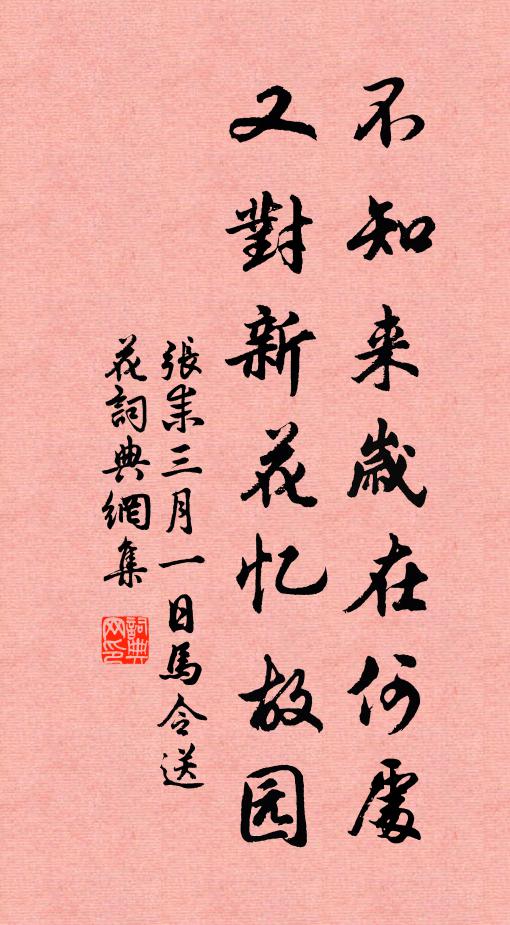 不知来歲在何處
又對新花忆故园
張耒三月一日馬令送
花詞典網集
詞典
网印